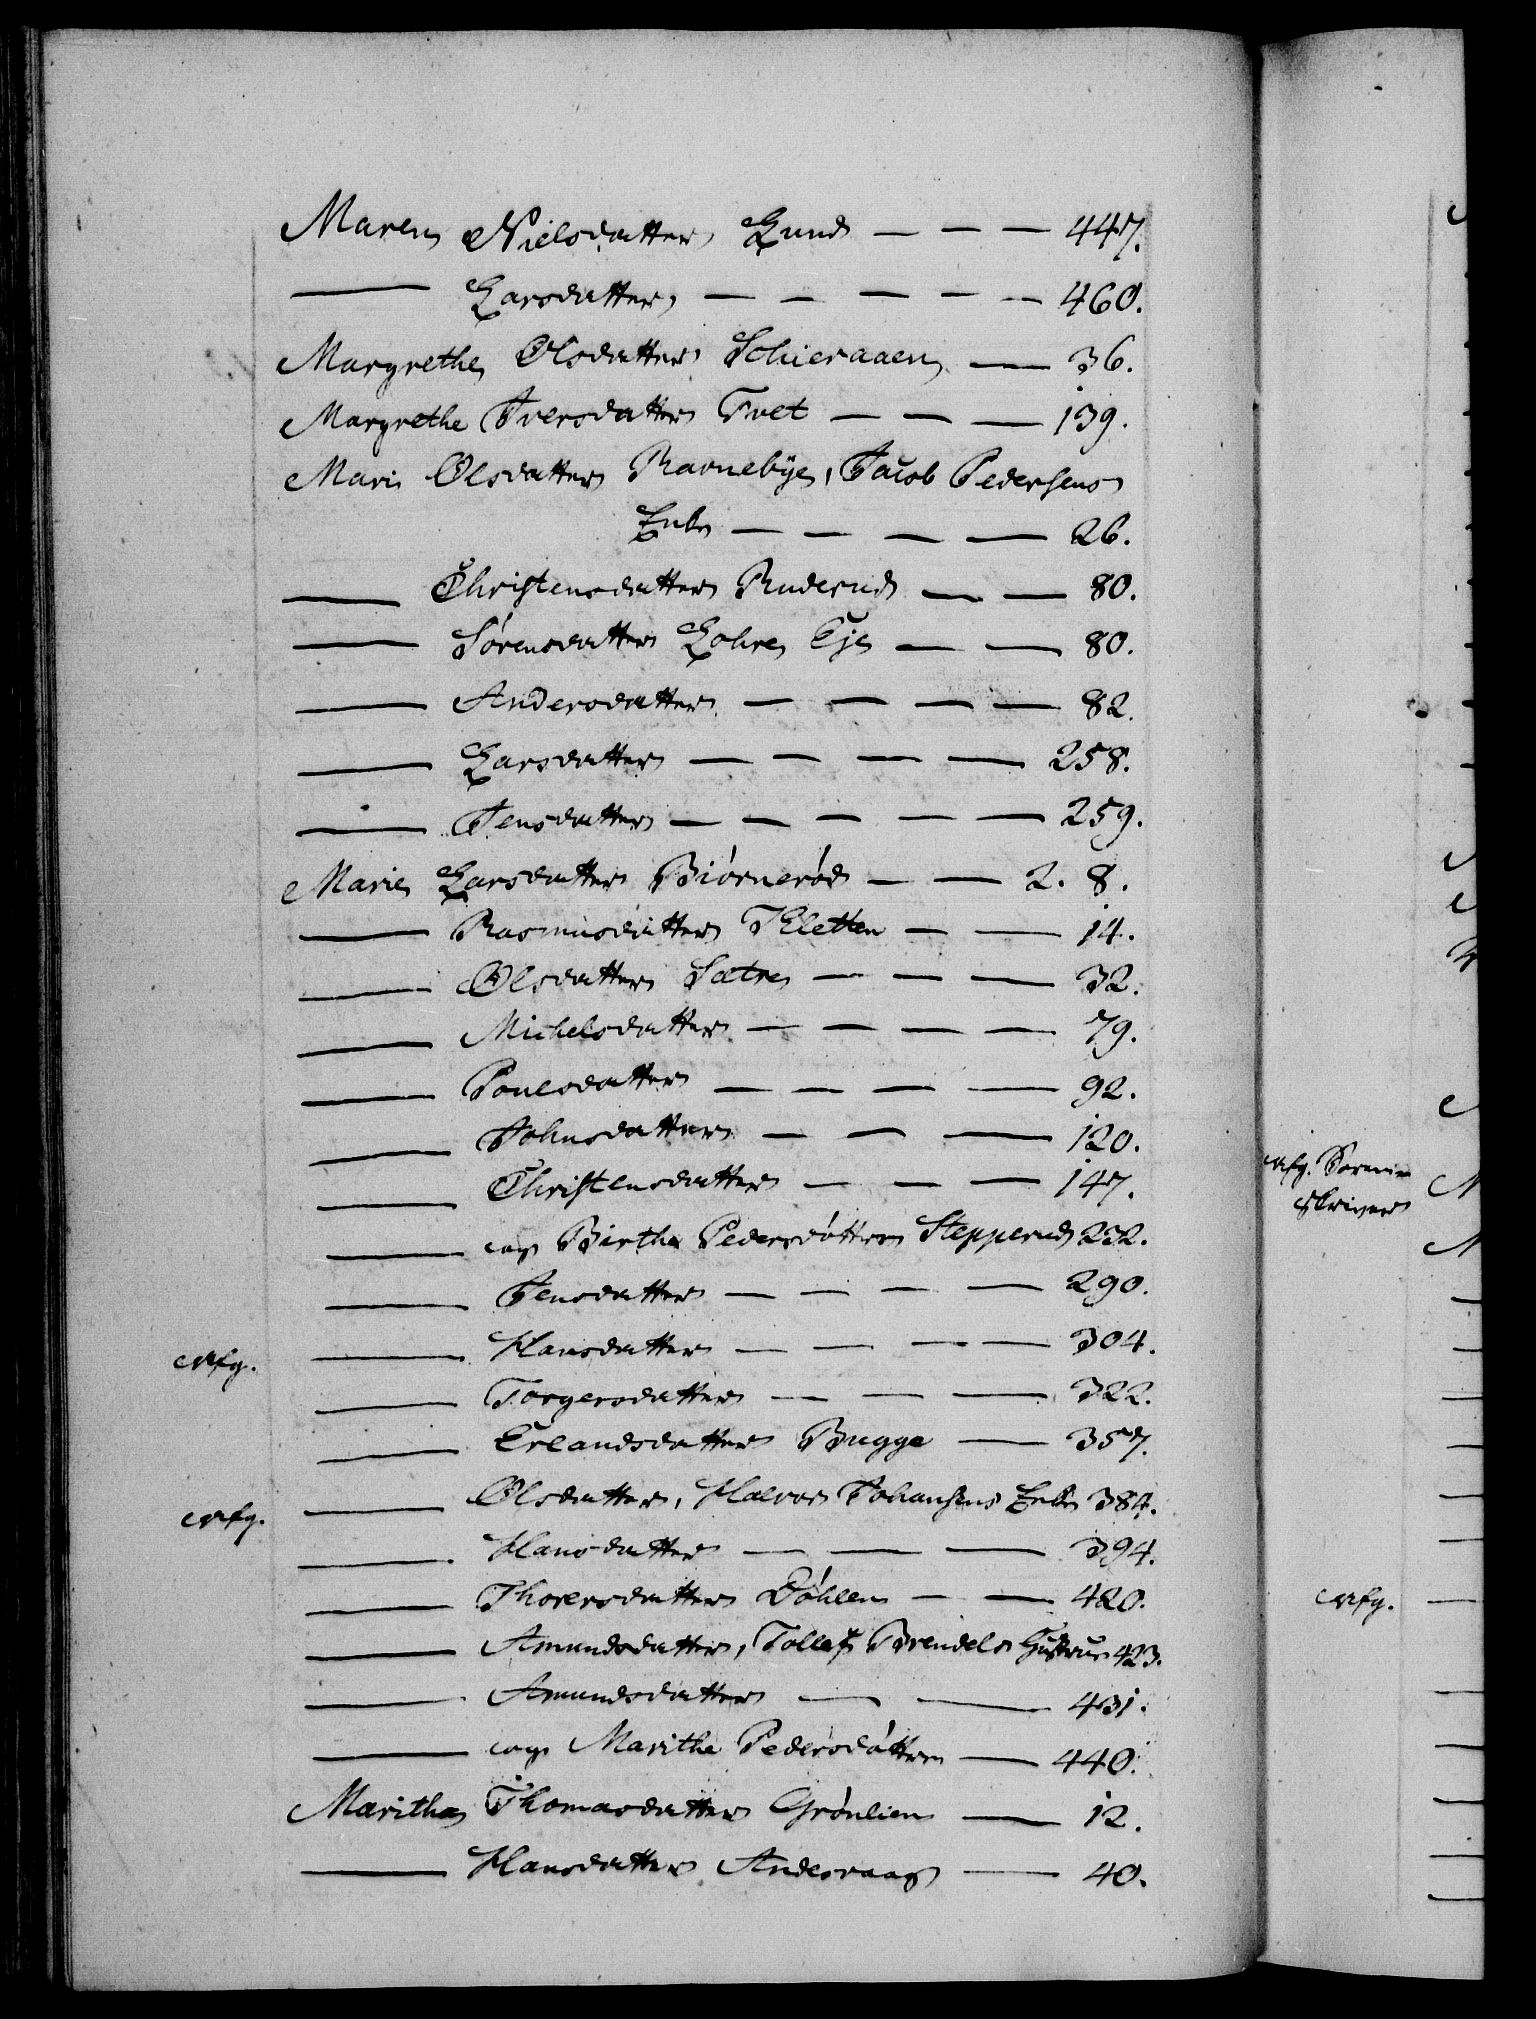 Maren Nielsdatter Lund — — — 447.
— Larsdatter — — — — — 460.
Margrethe Olsdatter Schieraaen — 36.
Margrethe Iversdatter Tvet — — — 139.
Mari Olsdatter Ravnebye, Jacob Pedersens
Enke — — — — 26.
— Christensdatter Ruderud — — 80.
— Sørensdatter Lohre Eje — — 80.
— Andersdatter — — — — 82.
— Larsdatter — — — — 258.
— Jensdatter — — — — — 259.
Marie Larsdatter Biørnerød — — 2. 8.
— Rasmusdatter Kletten — — 14.
— Olsdatter Sætre — — — 32.
— Michelsdatter — — — — 79.
— Poulsdatter — — — — 92.
— Johnsdatter — — — 120.
— Christensdatter — — — 147.
— og Birthe Pedersdøttre Stepperud 232.
— Jensdatter — — — — 290.
Afg. — Hansdatter — — — — 304.
— Torgersdatter — — — 322.
— Erlandsdatter Bugge — 357.
Afg. — Olsdatter, Halvor Johansens Enke 384.
— Hansdatter — — — 394.
— Thorersdatter Døhlen — — 420.
— Amundsdatter, Tollef Brendels Hustrue 423.
— Amundsdatter — — 431.
— og Marithe Pedersdøttre — 440.
Marithe Thomasdatter Grønlien — 12.
— Hansdatter Andesraag — 40.
Afg. Sorenskriver
Afg.